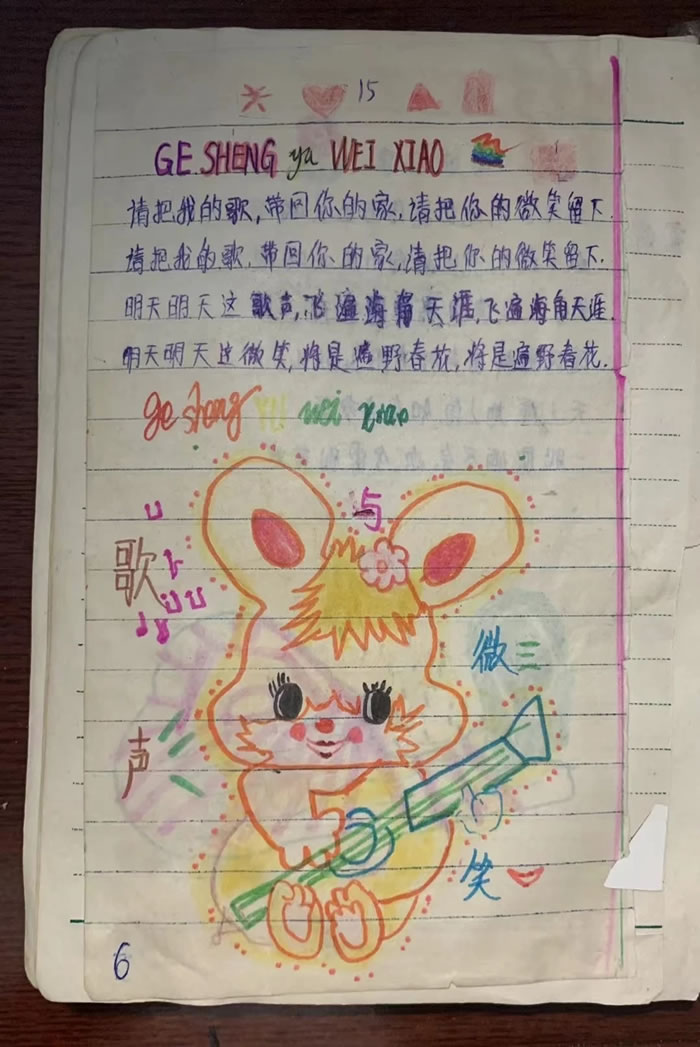 15
GE SHENG yu WEI XIAO
请把我的歌,带回你的家,请把你的微笑留下.
请把我的歌,带回你的家,请把你的微笑留下.
明天明天这歌声,飞遍海角天涯,飞遍海角天涯.
明天明天这微笑,将是遍野春花,将是遍野春花.
ge sheng yu wei xiao
与
歌
微
声
笑
6